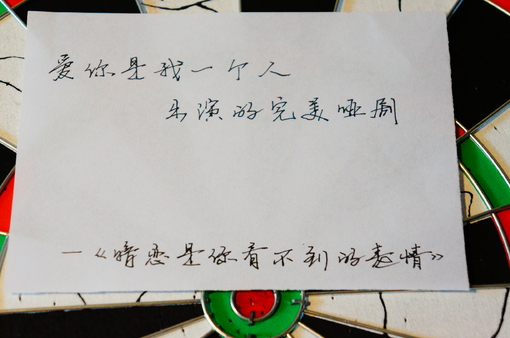 爱你是我一个人
出演的完美哑剧
—《暗恋是你看不到的表情》